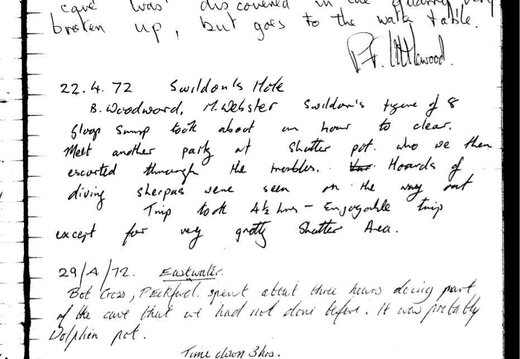 cave was discovered in the quarry very
broken up, but goes to the water table.
22.4.72 Swildon's Hole
B. Woodward, M. Webster Swildon's figure of 8
Sloop Sump took about an hour to clear.
Meet another party at Shatter pot. who we then
escorted through the troubles. Hoards of
diving sherpas were seen on the way out
Trip took 4½ hrs – Enjoyable trip
except for very grotty Shatter Area.
29/4/72. Eastwater.
Bob Cross, spent about three hours doing part
of the cave that we had not done before. It was probably
Dolphin pot.
Time down 3hrs.